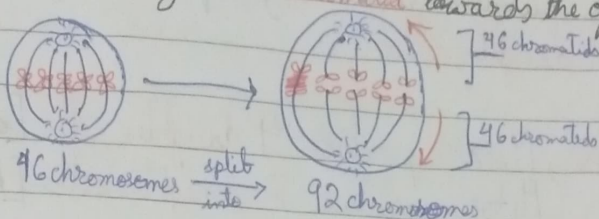 towards the
46 chromatids
46 chromatids
46 chromosomes split into 92 chromosomes